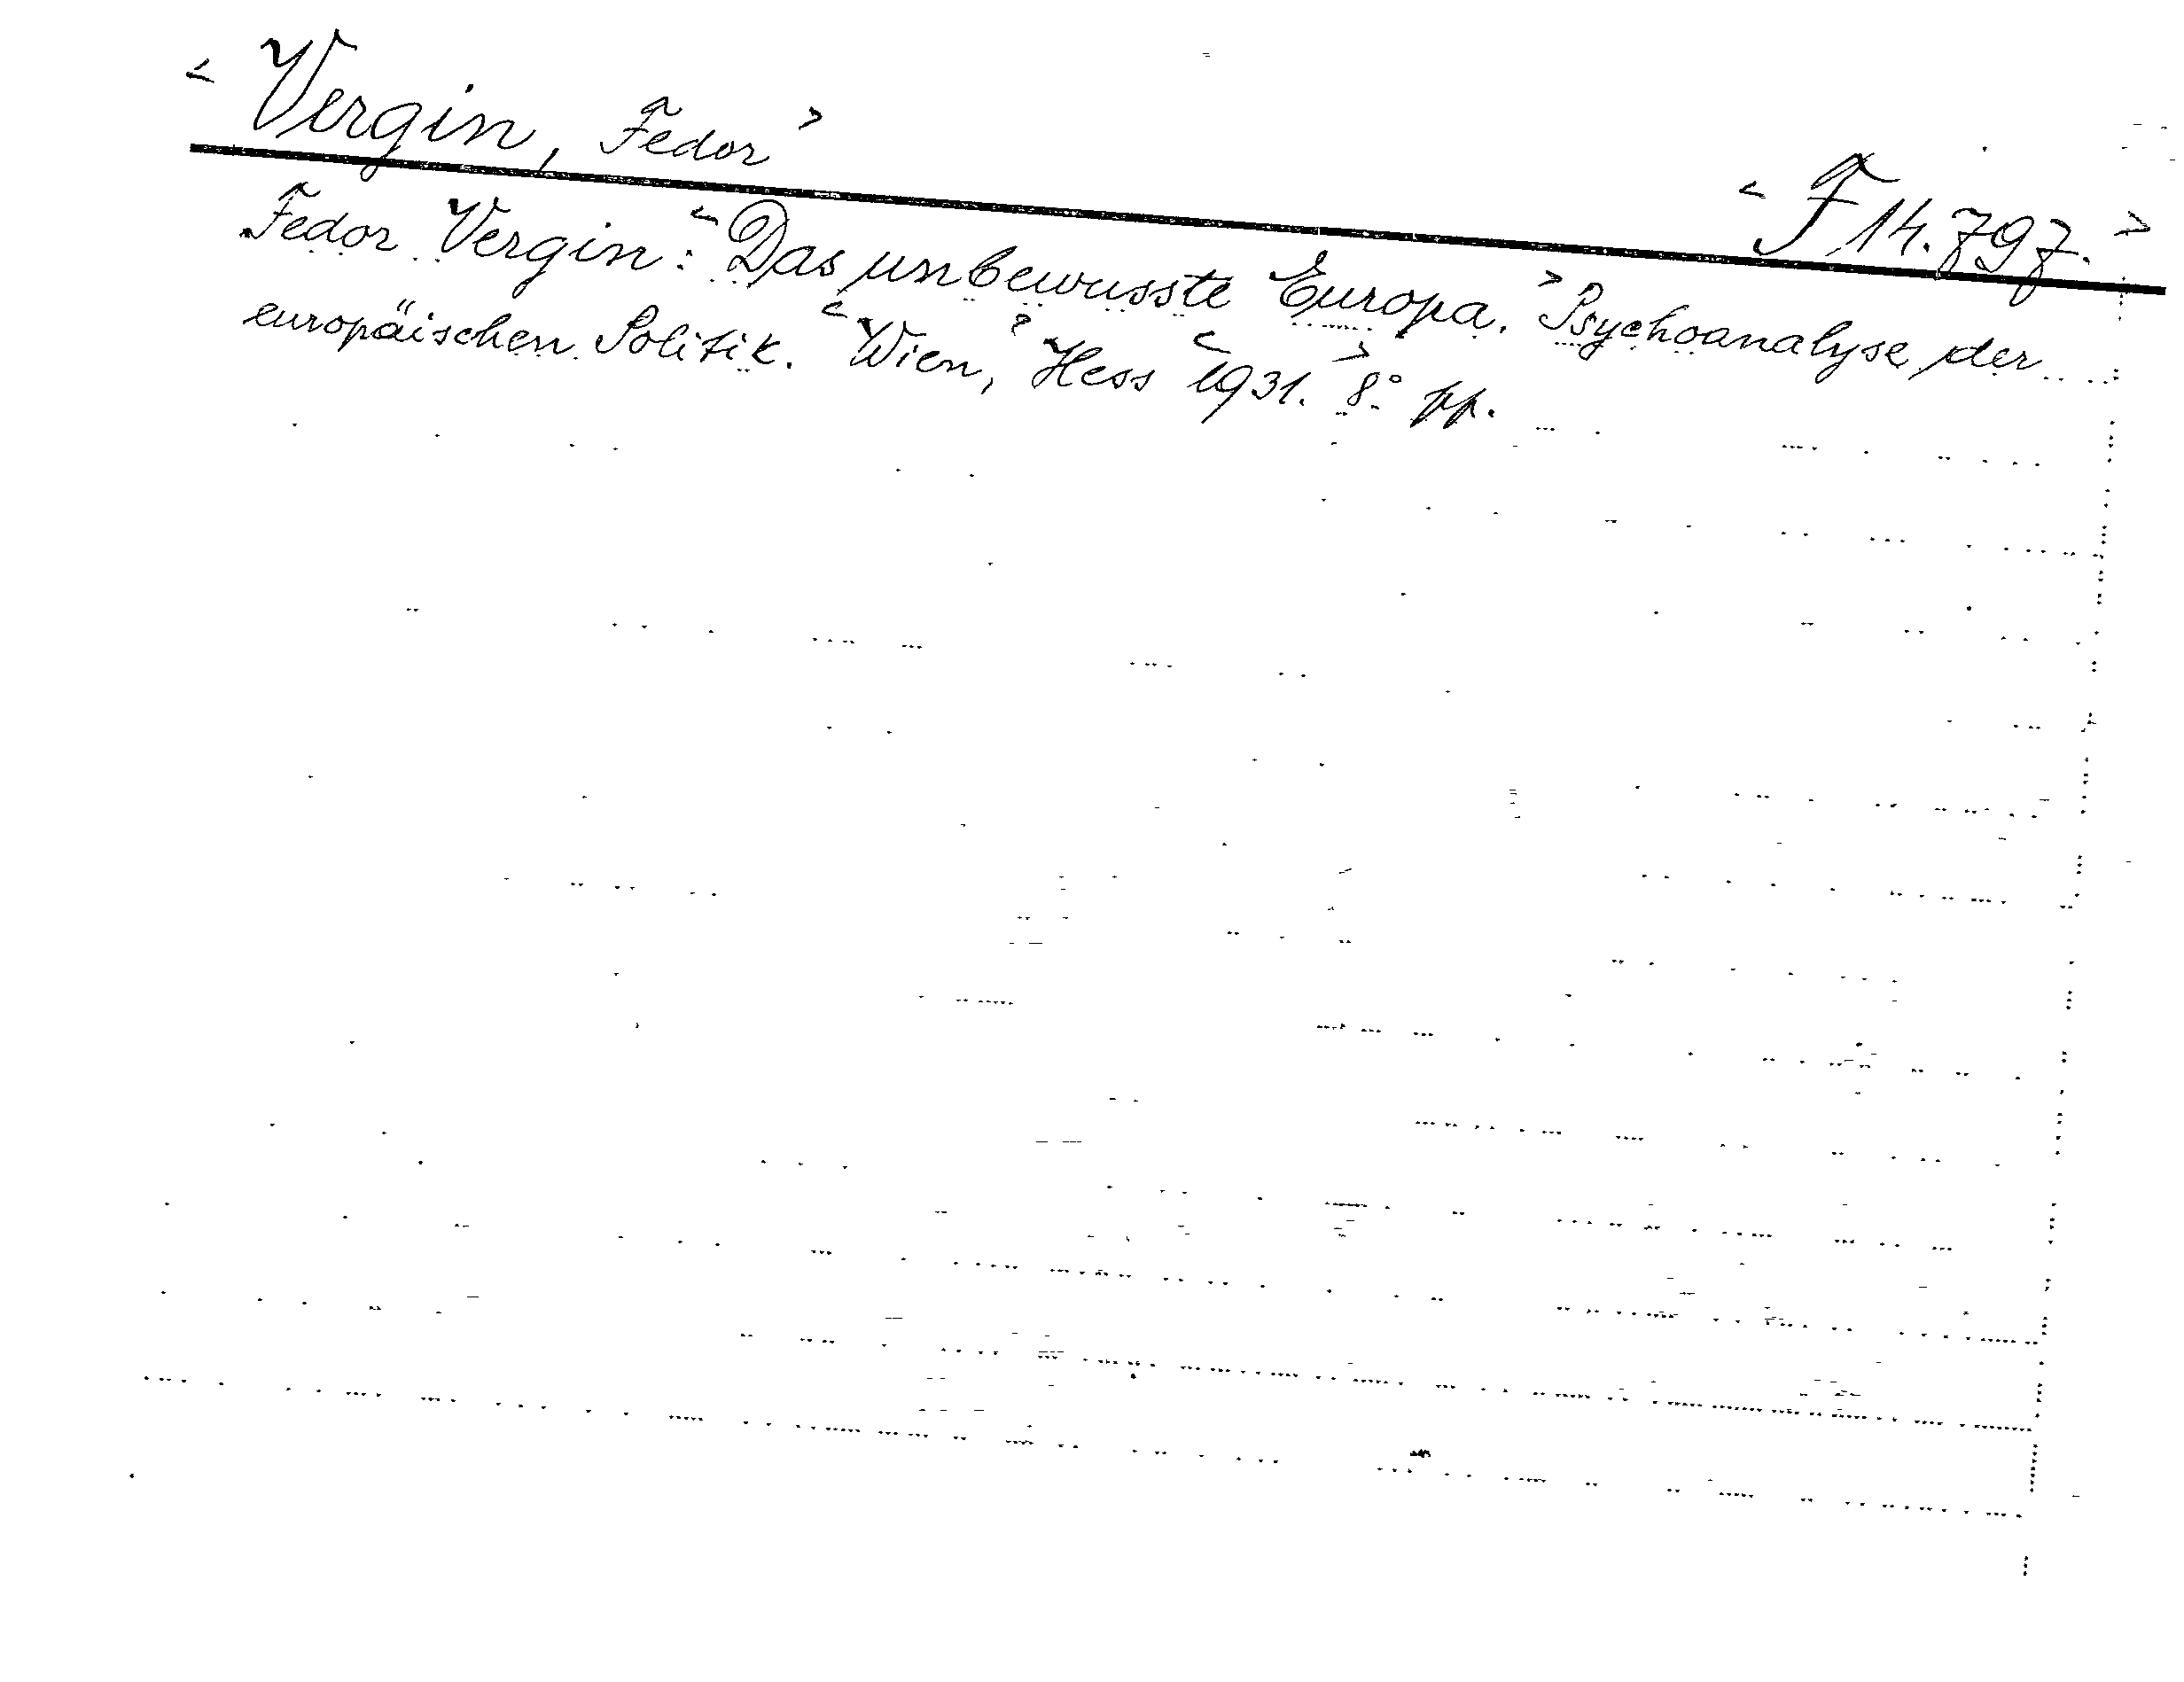 < Vergin, Fedor >
< F 14.797. >
Fedor Vergin: < Das unbewusste Europa. > Psychoanalyse der
europäischen Politik. < Wien, > Hess < 1931. > 8° pp.